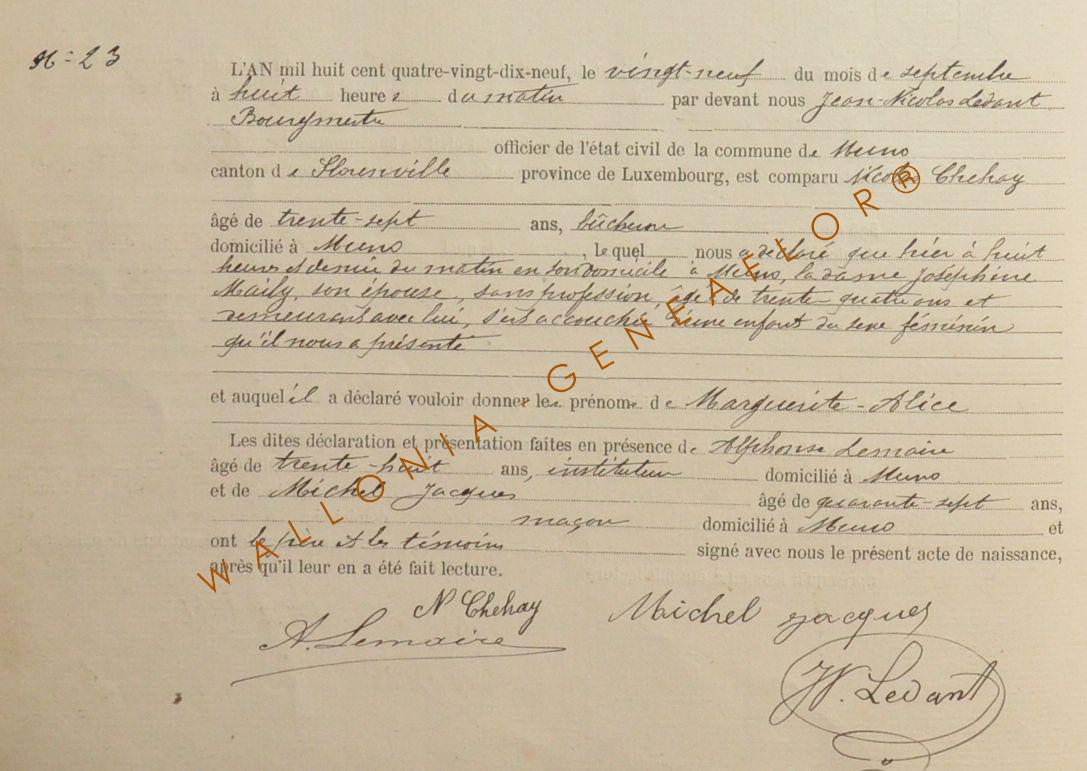 N° 23
L'AN mil huit cent quatre-vingt-dix-neuf, le vingt-neuf du mois de septembre
à huit heures du matin par devant nous Jean-Nicolas Ledant
Bourgmestre
officier de l'état civil de la commune de Muno
canton de Florenville province de Luxembourg, est comparu Nicolas Chehay
âgé de trente-sept ans, bûcheron
domicilié à Muno, lequel nous a déclaré que hier à huit
heures et demie du matin en son domicile à Muno, la dame Joséphine
Maily, son épouse, sans profession, âgé de trente-quatre ans et
demeurant avec lui, s'est accouchée d'une enfant du sexe féminin
qu'il nous a présenté
et auquel il a déclaré vouloir donner les prénoms de Marguerite-Alice
Les dites déclaration et présentation faites en présence de Alphonse Lemaire
âgé de trente-huit ans, instituteur domicilié à Muno
et de Michel Jacques âgé de quarante-sept ans,
maçon domicilié à Muno et
ont le père et les témoins signé avec nous le présent acte de naissance,
après qu'il leur en a été fait lecture.
N Chehay Michel Jacques
A. Lemaire
JN. Ledant
WALLONIA - GENEAFLOR®